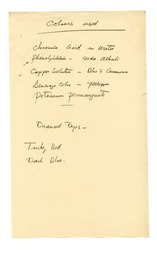 Colours used
Chromic Acid in Water
Phenolphthalein - Soda Alkali
Copper Solution - Blue & Ammonia
- Yellow
Potassium permanganate
Diamond Dyes -
Turkey Red
Dark Blue